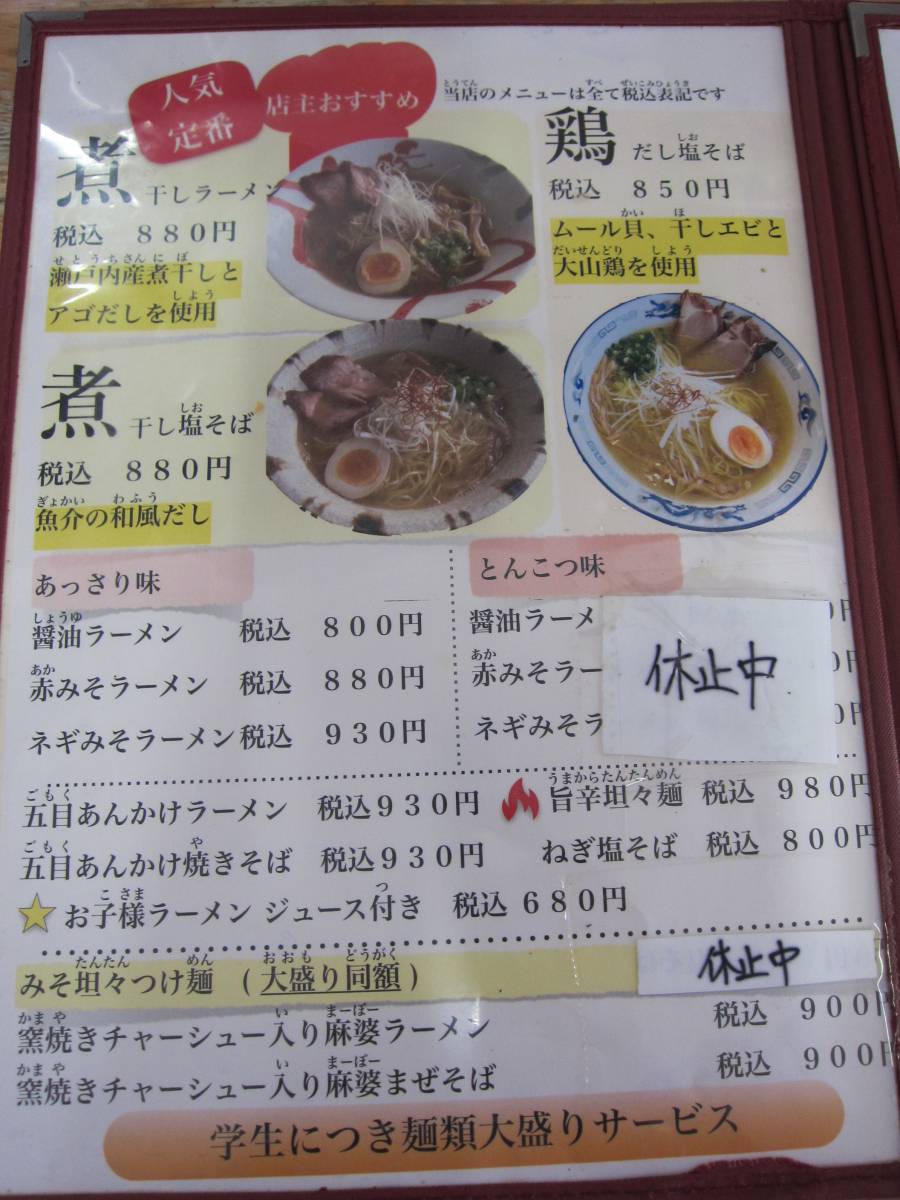 人気
定番
店主おすすめ
当店のメニューは全て税込表記です
煮干しラーメン
税込 880円
瀬戸内産煮干しと
アゴだしを使用
鶏だし塩そば
税込 850円
ムール貝、干しエビと
大山鶏を使用
煮干し塩そば
税込 880円
魚介の和風だし
あっさり味
醤油ラーメン 税込 800円
赤みそラーメン 税込 880円
ネギみそラーメン 税込 930円
とんこつ味
醤油ラーメ
赤みそラー
ネギみそラ
休止中
五目あんかけラーメン 税込930円
旨辛坦々麺 税込 980円
五目あんかけ焼きそば 税込930円
ねぎ塩そば 税込 800円
お子様ラーメン ジュース付き 税込 680円
みそ坦々つけ麺 (大盛り同額) 休止中
窯焼きチャーシュー入り麻婆ラーメン 税込 900円
窯焼きチャーシュー入り麻婆まぜそば 税込 900円
学生につき麺類大盛りサービス